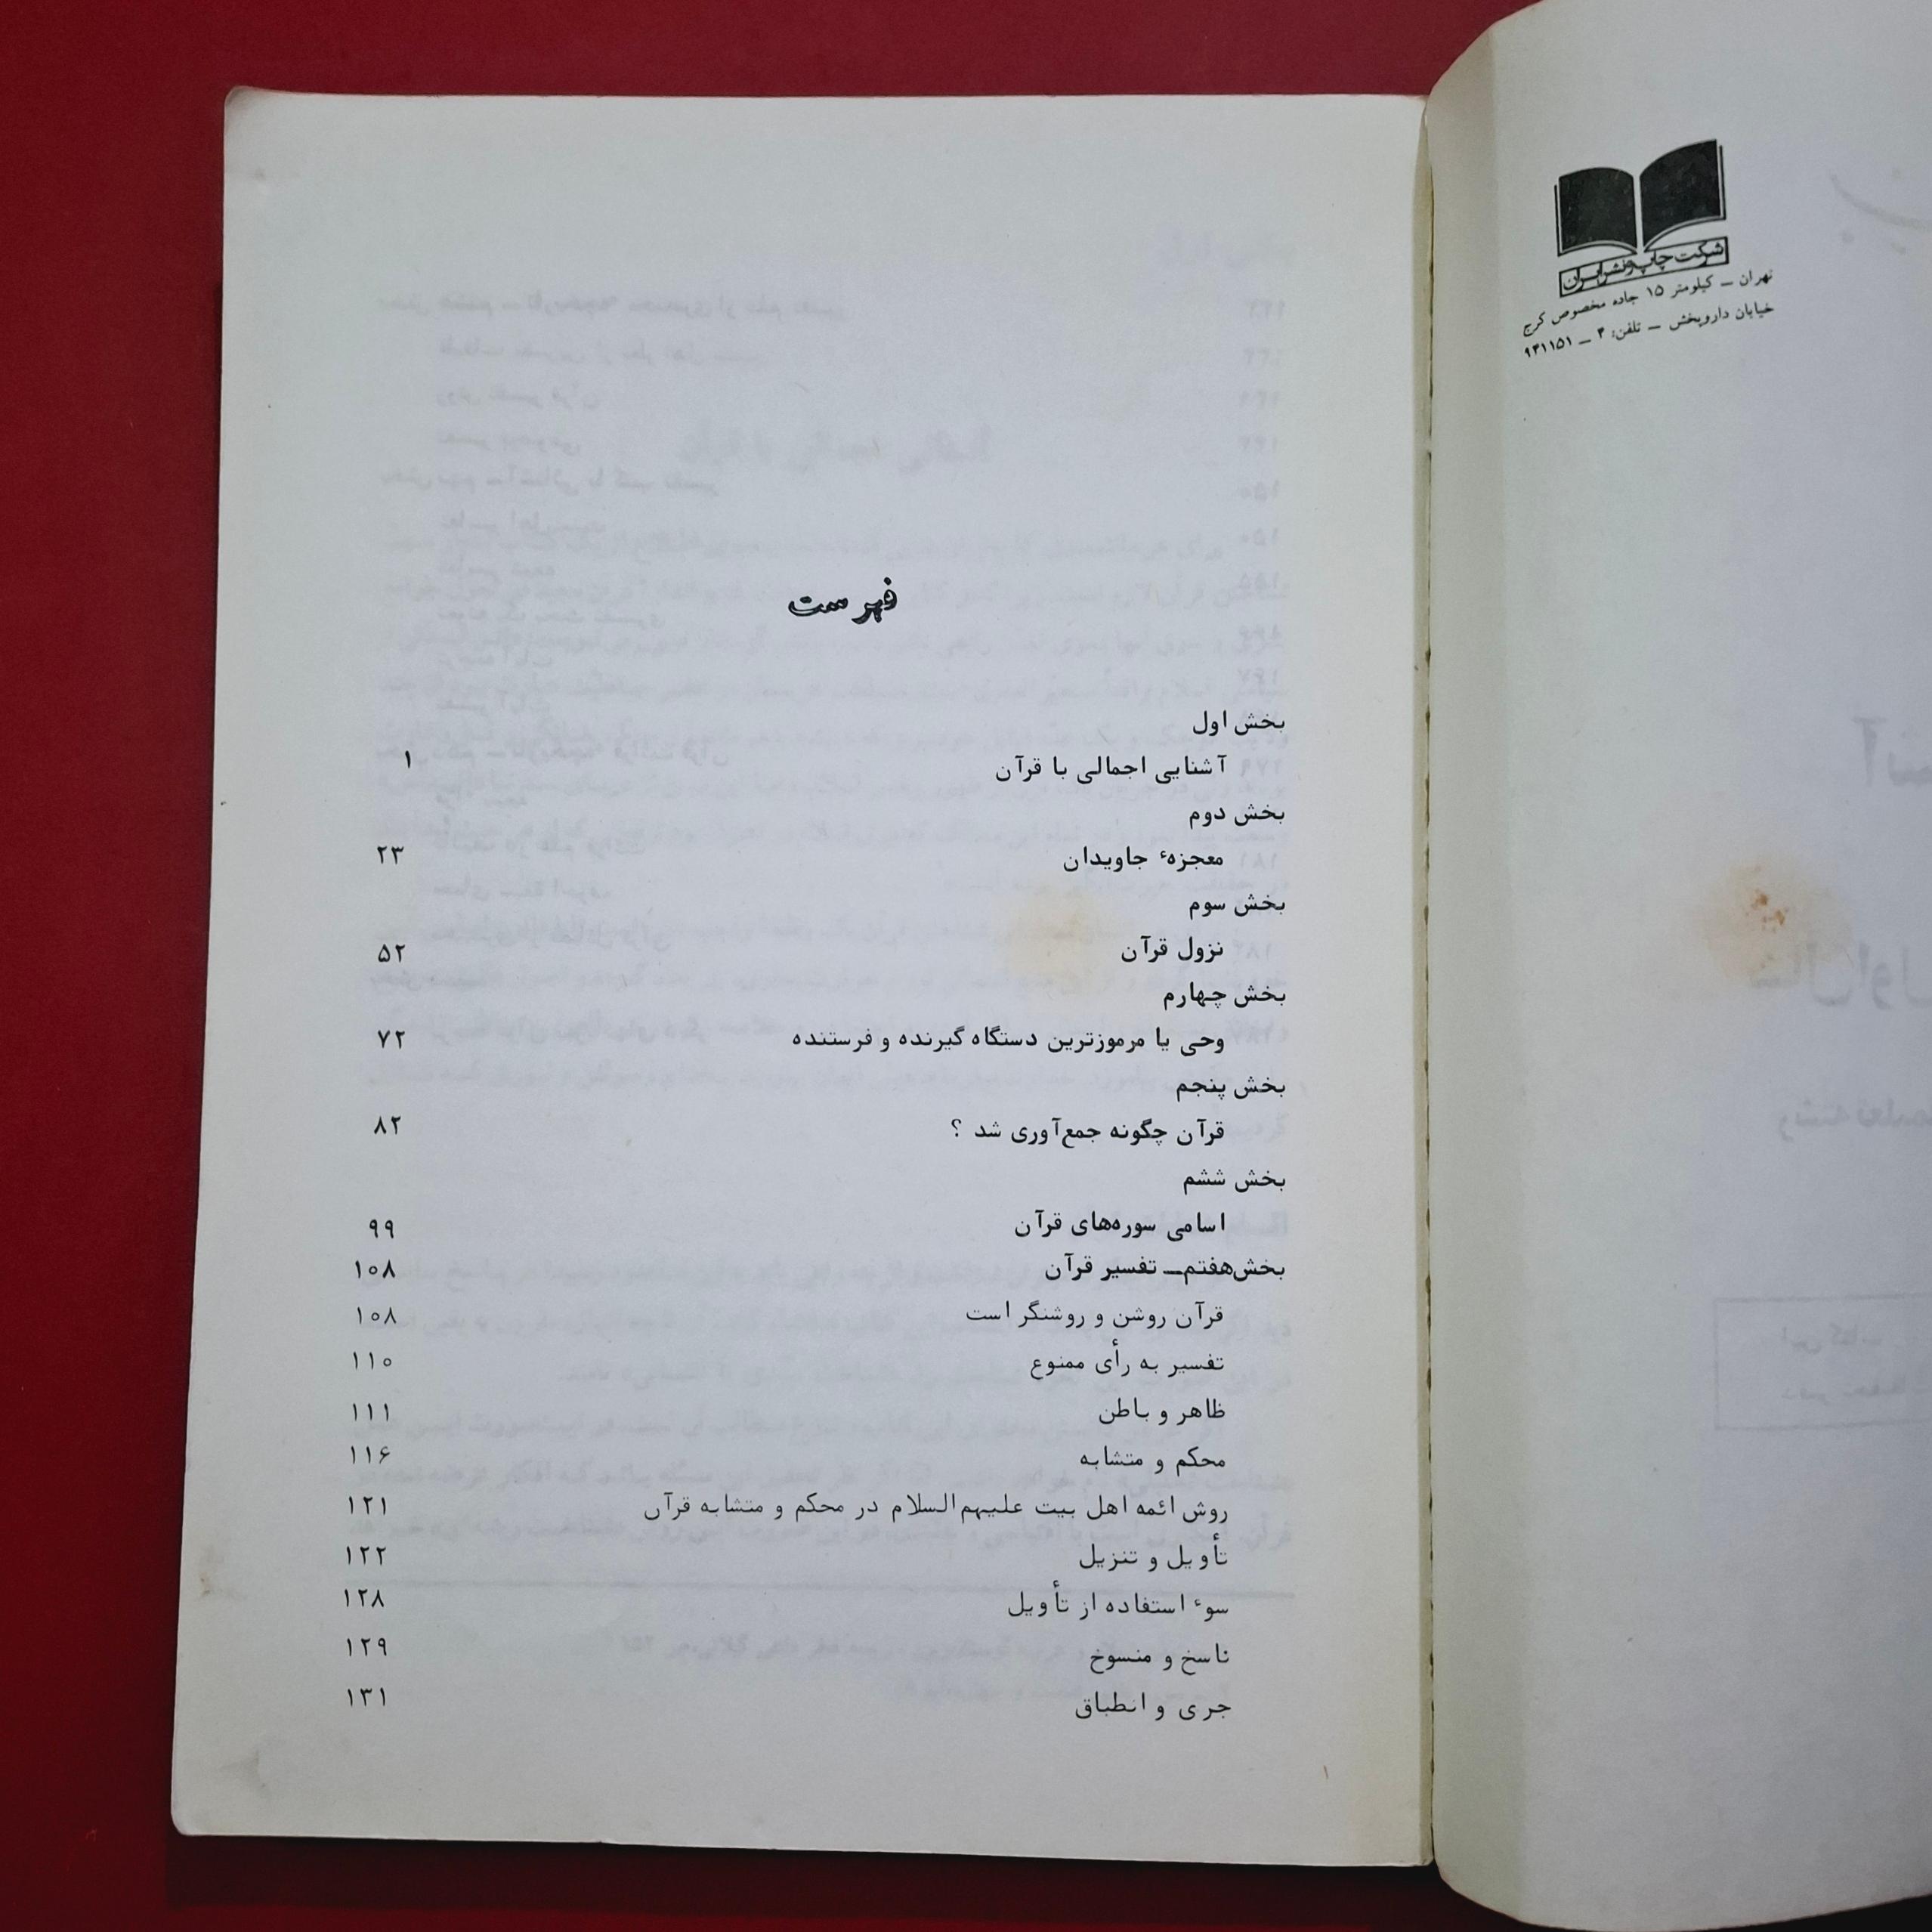 شرکت چاپ و نشر ایران
تهران – کیلومتر ۱۵ جاده مخصوص کرج
خیابان داروپخش – تلفن: ۴ – ۹۴۱۱۵۱
فهرست
بخش اول
آشنایی اجمالی با قرآن ۱
بخش دوم
معجزهٔ جاویدان ۲۳
بخش سوم
نزول قرآن ۵۲
بخش چهارم
وحی یا مرموزترین دستگاه گیرنده و فرستنده ۷۲
بخش پنجم
قرآن چگونه جمع‌آوری شد ؟ ۸۲
بخش ششم
اسامی سوره‌های قرآن ۹۹
بخش هفتم – تفسیر قرآن ۱۰۸
قرآن روشن و روشنگر است ۱۰۸
تفسیر به رأی ممنوع ۱۱۰
ظاهر و باطن ۱۱۱
محکم و متشابه ۱۱۶
روش ائمه اهل بیت علیهم‌السلام در محکم و متشابه قرآن ۱۲۱
تأویل و تنزیل ۱۲۲
سوء استفاده از تأویل ۱۲۸
ناسخ و منسوخ ۱۲۹
جری و انطباق ۱۳۱